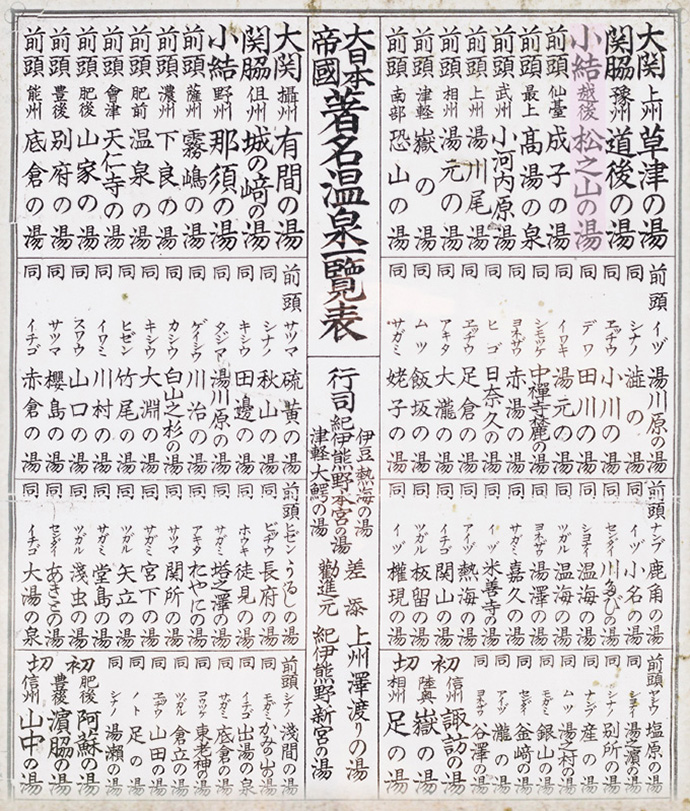 大日本帝國 著名温泉一覧表
大関 上州 草津の湯
関脇 豫州 道後の湯
小結 越後 松之山の湯
前頭 仙臺 成子の湯
前頭 最上 髙湯の泉
前頭 武州 小河内原湯
前頭 上州 湯川尾湯
前頭 相州 湯元の湯
前頭 津軽 嶽の湯
前頭 南部 恐山の湯
前頭 イヅ 湯川原の湯
同 シナノ 澁の湯
同 ヱッチウ 小川の湯
同 デワ 田川の湯
同 イワキ 湯元の湯
同 シモツケ 中禅寺麓の湯
同 ヨネザワ 赤湯の湯
同 ヒゴ 日奈久の湯
同 ヱッチウ 足倉の湯
同 アキタ 大瀧の湯
同 ムツ 飯坂の湯
同 サガミ 姥子の湯
前頭 ナンブ 鹿角の湯
同 イヅ 小名の湯
同 センダイ 川たびの湯
同 温海の湯
同 ツガル 温海の湯
同 ヨネザワ 湯澤の湯
同 サガミ 嘉久の湯
同 イヅ 米善寺の湯
同 アイヅ 熱海の湯
同 イチゴ 関山の湯
同 ツガル 板留の湯
同 イヅ 権現の湯
前頭 塩原の湯
同 湯之濱の湯
同 シナノ 別所の湯
同 ナンブ 産の湯
同 ムツ 湯之村の湯
同 モガミ 銀山の湯
同 センダイ 釜﨑の湯
同 アイヅ 瀧の湯
同 ヨネザワ 谷澤の湯
初 信州 諏訪の湯
陸奥 嶽の湯
切 相州 足の湯
行司
伊豆熱海の湯
紀伊熊野本宮の湯
津軽大鰐の湯
差添 上州澤渡りの湯
勧進元 紀伊熊野新宮の湯
大関 攝州 有間の湯
関脇 但州 城の﨑の湯
小結 野州 那須の湯
前頭 薩州 霧嶋の湯
前頭 濃州 下良の湯
前頭 肥前 温泉の湯
前頭 會津 天仁寺の湯
前頭 肥後 山家の湯
前頭 豊後 別府の湯
前頭 能州 底倉の湯
前頭 サツマ 硫黄の湯
同 シナノ 秋山の湯
同 キシウ 田邊の湯
同 タジマ 湯川原の湯
同 ゲイシウ 川治の湯
同 カシウ 白山之杉の湯
同 キシウ 大淵の湯
同 ヒゼン 竹尾の湯
同 イワミ 川村の湯
同 スワウ 山口の湯
同 サツマ 櫻島の湯
同 イチゴ 赤倉の湯
前頭 ヒゼン うるしの湯
同 ビッチウ 長府の湯
同 ホウキ 徒見の湯
同 サガミ 塔之澤の湯
同 アキタ たやにの湯
同 サツマ 関所の湯
同 サガミ 宮下の湯
同 ツガル 矢立の湯
同 サガミ 堂島の湯
同 ツガル 淺虫の湯
同 センダイ あきうの湯
同 イチゴ 大湯の泉
前頭 シナノ 淺間の湯
同 モガミ かみの山の湯
同 イチゴ 出湯の泉
同 サガミ 底倉の湯
同 コウツケ 東老神の湯
同 ツガル 倉立の湯
同 ヱチウ 山田の湯
同 ノト 足の湯
同 シナノ 湯瀬の湯
初 肥後 阿蘇の湯
豊後 濵脇の湯
切 信州 山中の湯